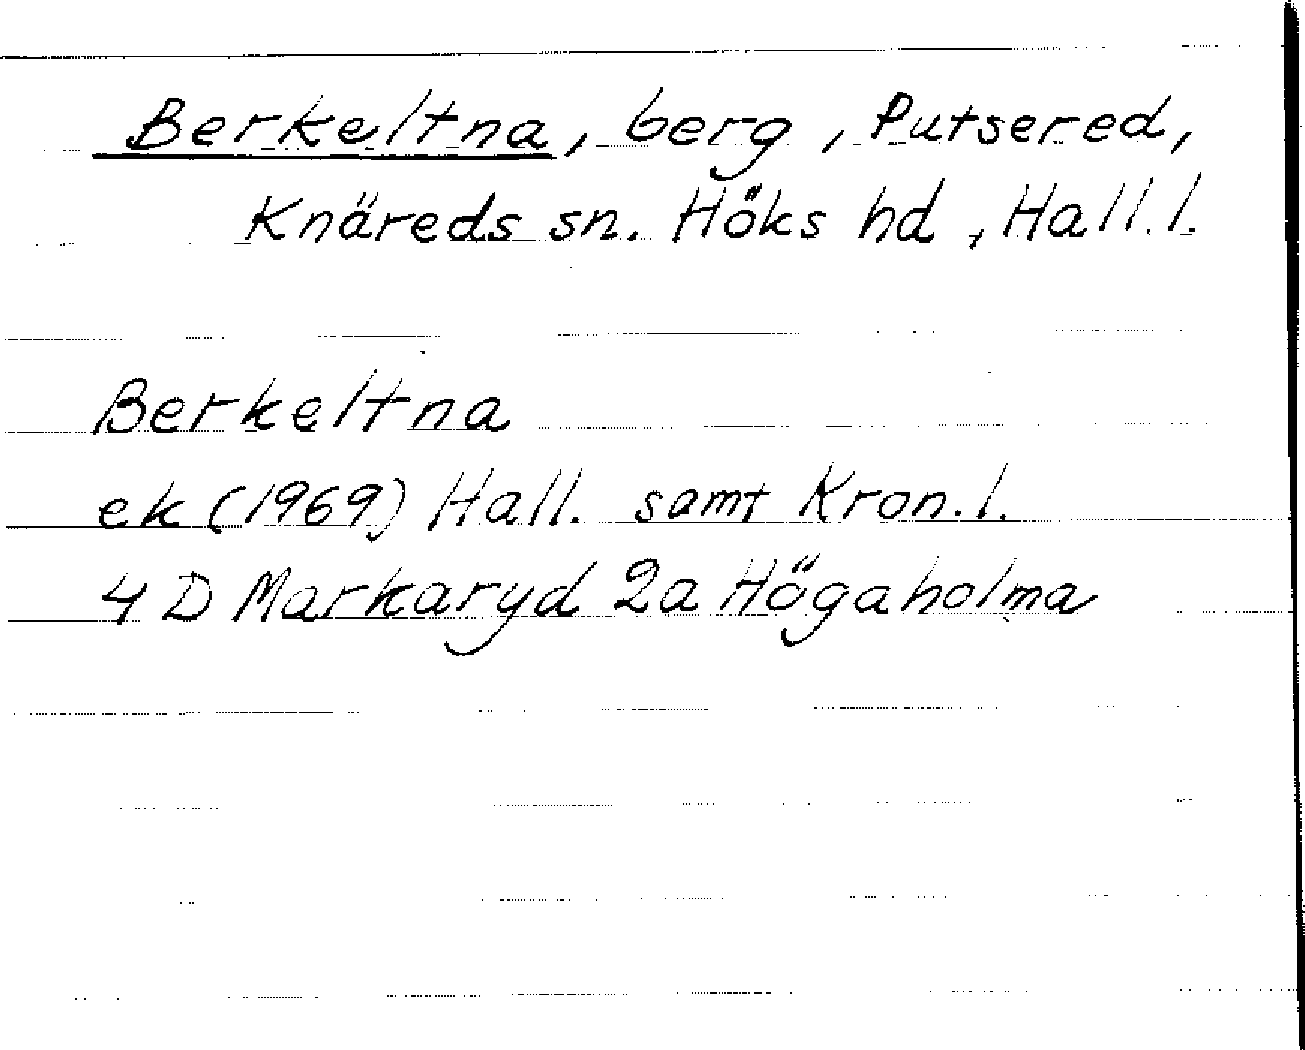 Berkeltna, berg, Putsered,
Knäreds sn. Höks hd, Hall. l.
Berkeltna
ek (1969) Hall. samt Kron. l.
4 D Markaryd 2a Högaholma